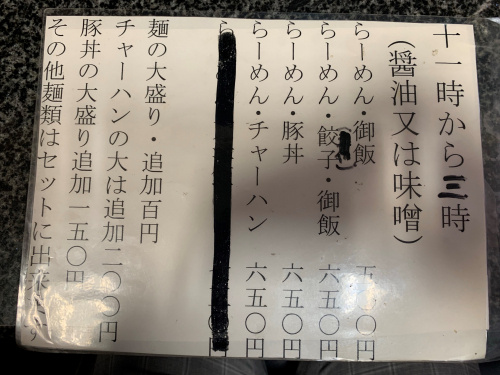 十一時から三時
(醤油又は味噌)
らーめん・御飯 五 〇円
らーめん・餃子・御飯 六五〇円
らーめん・豚丼 六五〇円
らーめん・チャーハン 六五〇円
麺の大盛り・追加百円
チャーハンの大は追加二〇〇円
豚丼の大盛り追加一五〇円
その他麺類はセットに出来 す